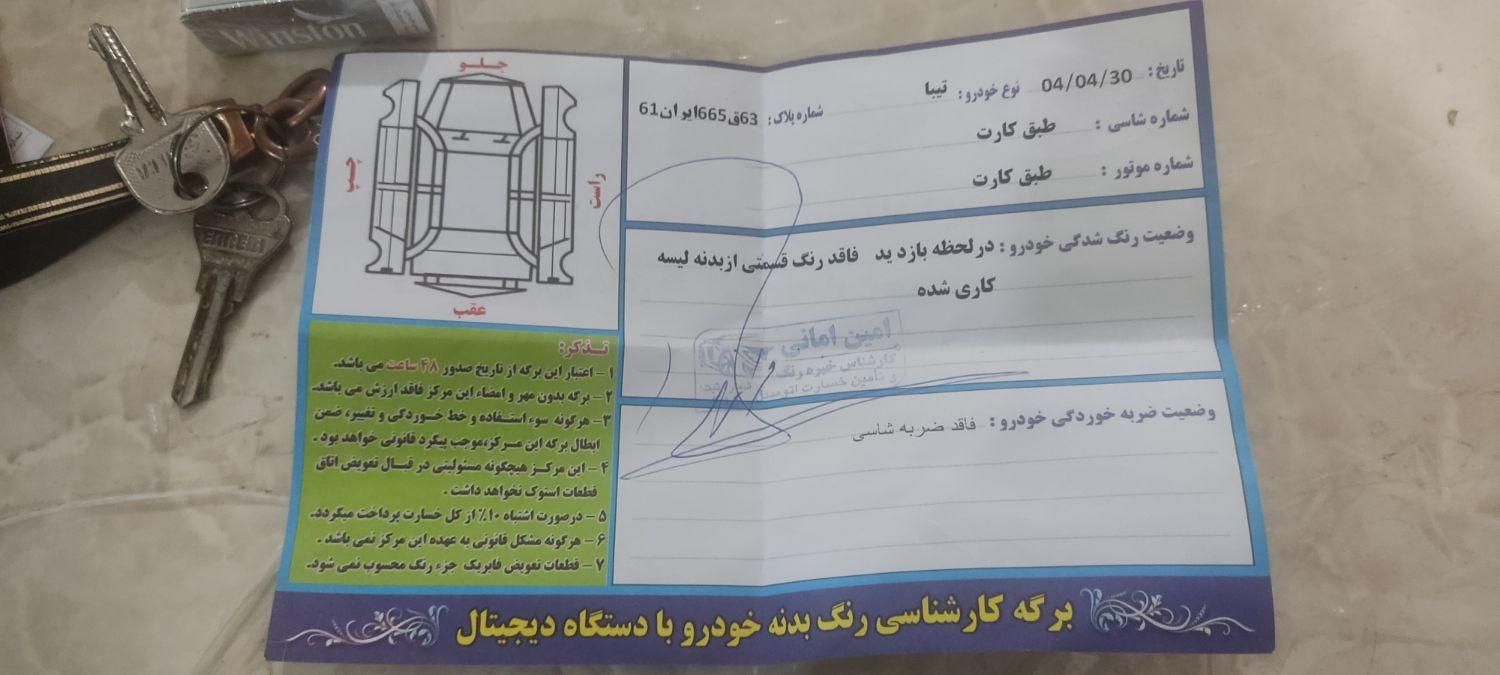 Winston
تاریخ : 04/04/30 نوع خودرو : تیبا شماره پلاک : 63ق665ایران61
شماره شاسی : طبق کارت
شماره موتور : طبق کارت
وضعیت رنگ شدگی خودرو : درلحظه بازدید فاقد رنگ قسمتی ازبدنه لیسه
کاری شده
امین امانی
کارشناس خبره رنگ
و تامین خسارت اتومبیل
وضعیت ضربه خوردگی خودرو : فاقد ضربه شاسی
جـلـو
چپ
راست
عقب
تـذکر:
۱- اعتبار این برگه از تاریخ صدور ۴۸ ساعت می باشد.
۲- برگه بدون مهر و امضاء این مرکز فاقد ارزش می باشد.
۳- هرگونه سوء استـفاده و خط خـوردگی و تغییر، ضمن
ابطال برگه این مـرکز،موجب پیگرد قانونی خواهد بود .
۴- این مرکـز هیچگونه مسئولیتی در قبـال تعویض اتاق
قطعات استوک نخواهد داشت .
۵- درصورت اشتباه ۱۰٪ از کل خسارت پرداخت میگردد.
۶- هرگونه مشکل قانونی به عهده این مرکز نمی باشد .
۷- قطعات تعویض فابریک جزء رنگ محسوب نمی شود.
برگه کارشناسی رنگ بدنه خودرو با دستگاه دیجیتال